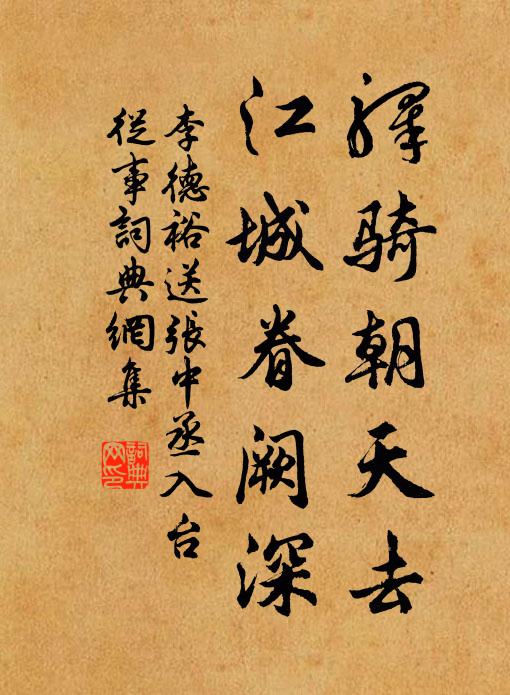 驛骑朝天去
江城眷阙深
李德裕送張中丞入台
從事詞典網集
詞典网印